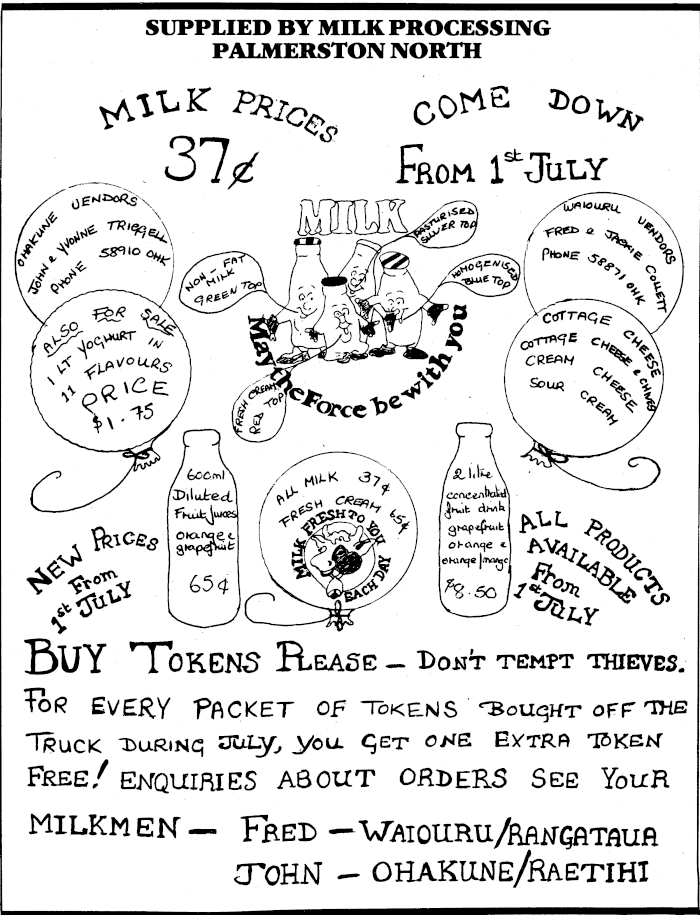 SUPPLIED BY MILK PROCESSING
PALMERSTON NORTH
MILK PRICES COME DOWN
37¢ FROM 1st JULY
OHAKUNE VENDORS
JOHN & YVONNE TRIGGELL
PHONE 58910 OHK
MILK
PASTURISED
SILVER TOP
NON-FAT
MILK
GREEN TOP
HOMOGENISED
BLUE TOP
FRESH CREAM
RED TOP
May the Force be with you
WAIOURU VENDORS
FRED & JACKIE COLLETT
PHONE 58871 OHK
ALSO FOR SALE
1 LT YOGHURT IN
11 FLAVOURS
PRICE
$1.75
COTTAGE CHEESE
COTTAGE CHEESE & CHIVES
CREAM CHEESE
SOUR CREAM
NEW PRICES
From
1st JULY
600ml
Diluted
Fruit Juices
orange &
grapefruit
65¢
ALL MILK 37¢
FRESH CREAM 65¢
MILK FRESH TO YOU
EACH DAY
2 litre
concentrated
fruit drink
grapefruit
orange &
orange/mango
$8.50
ALL PRODUCTS
AVAILABLE
From
1st JULY
BUY TOKENS PLEASE - DON'T TEMPT THIEVES.
FOR EVERY PACKET OF TOKENS BOUGHT OFF THE
TRUCK DURING JULY, YOU GET ONE EXTRA TOKEN
FREE! ENQUIRIES ABOUT ORDERS SEE YOUR
MILKMEN - FRED - WAIOURU/RANGATAUA
JOHN - OHAKUNE/RAETIHI